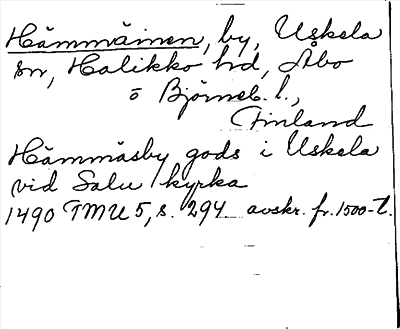 Hämmäinen, by, Uskela
sn, Halikko hd, Åbo
o Björneb. l.,
Finland
Hämmäsby gods i Uskela
vid Salu kyrka
1490 FMU 5, s. 294 avskr. fr. 1500-t.